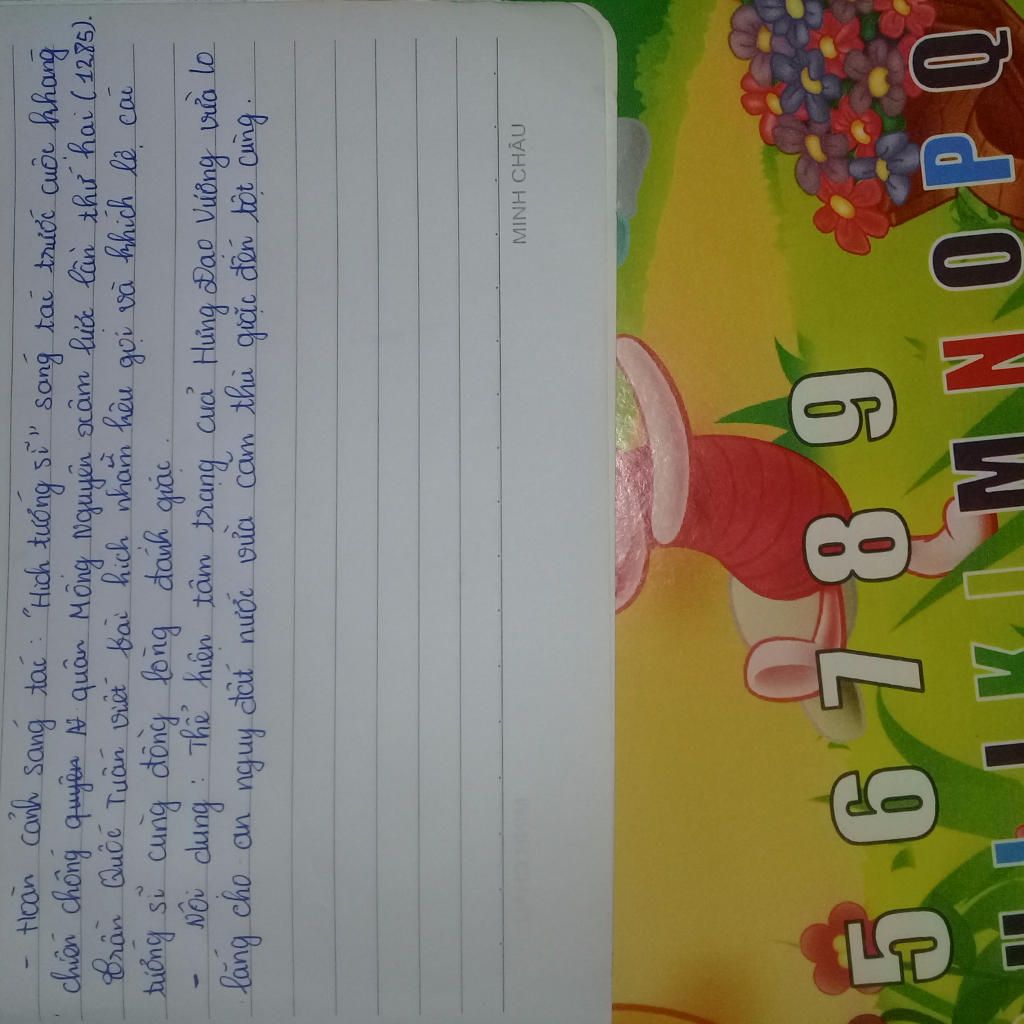 - Hoàn cảnh sáng tác : "Hịch tướng sĩ" sáng tác trước cuộc kháng
chiến chống quân Mông Nguyên xâm lược lần thứ hai (1285).
Trần Quốc Tuấn viết bài hịch nhằm kêu gọi và khích lệ các
tướng sĩ cùng đồng lòng đánh giặc.
- Nội dung : Thể hiện tâm trạng của Hưng Đạo Vương vừa lo
lắng cho an nguy đất nước vừa căm thù giặc đến tột cùng.
MINH CHÂU
5 6 7 8 9
I K L M N O P Q